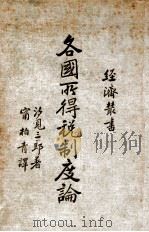 經濟叢書
各國所得稅制度論
汐見三郎著
甯柏青譯
www.dushu369.com